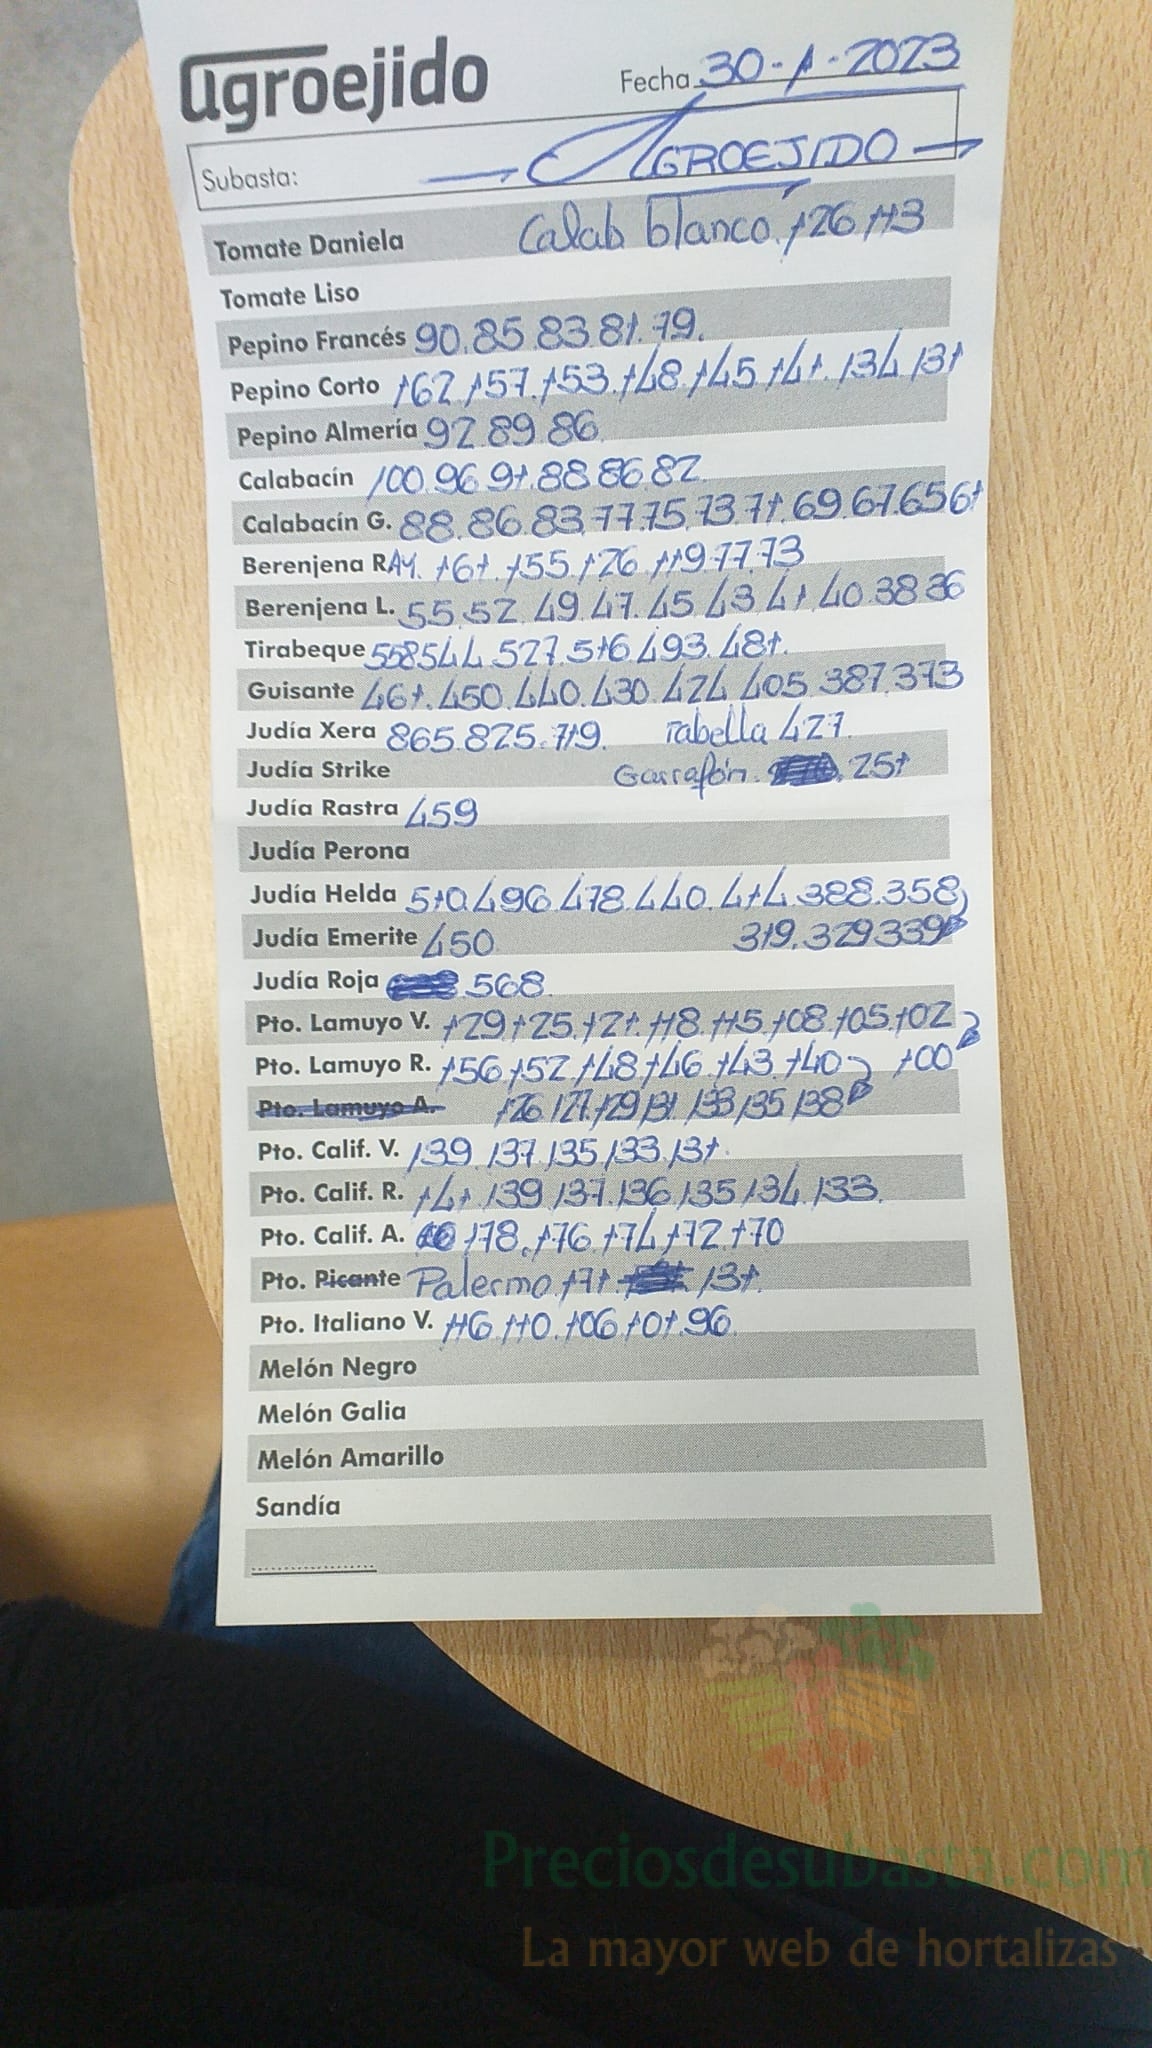 agroejido
Fecha 30-1-2023
Subasta: AGROEJIDO
Tomate Daniela Calab blanco. 126 113
Tomate Liso
Pepino Francés 90.85.83.81.79.
Pepino Corto 162.157.153.148.145.141.134.131
Pepino Almería 92.89.86.
Calabacín 100.96.91.88.86.82.
Calabacín G. 88.86.83.77.75.73.71.69.67.65.61
Berenjena RAY. 161.155.126.119.77.73
Berenjena L. 55.52.49.47.45.43.41.40.38.36
Tirabeque 558.544.527.516.493.481.
Guisante 461.450.440.430.424.405.387.373
Judía Xera 865.825.719. rabella 427.
Judía Strike Garrafón. 251
Judía Rastra 459
Judía Perona
Judía Helda 510.496.478.440.414.388.358
Judía Emerite 450 319.329.339
Judía Roja 568.
Pto. Lamuyo V. 129.125.121.118.115.108.105.102
Pto. Lamuyo R. 156.152.148.146.143.140 100
Pto. Lamuyo A. 126.127.129.131.133.135.138
Pto. Calif. V. 139.137.135.133.131.
Pto. Calif. R. 141.139.137.136.135.134.133.
Pto. Calif. A. 178.176.174.172.170
Pto. Picante Palermo 171. 131.
Pto. Italiano V. 116.110.106.101.96.
Melón Negro
Melón Galia
Melón Amarillo
Sandía
Preciosdesubasta.com
La mayor web de hortalizas